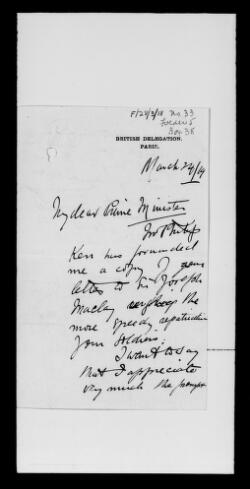 F/28/3/18 No. 33
Folder 5
Box 38
BRITISH DELEGATION,
PARIS.
March 24/19
My dear Prime Minister
Kerr has forwarded
me a copy of your
letter to Sir Joseph
Maclay urging the
more speedy repatriation
your soldiers.
I want to say
that I appreciate
very much the prompt